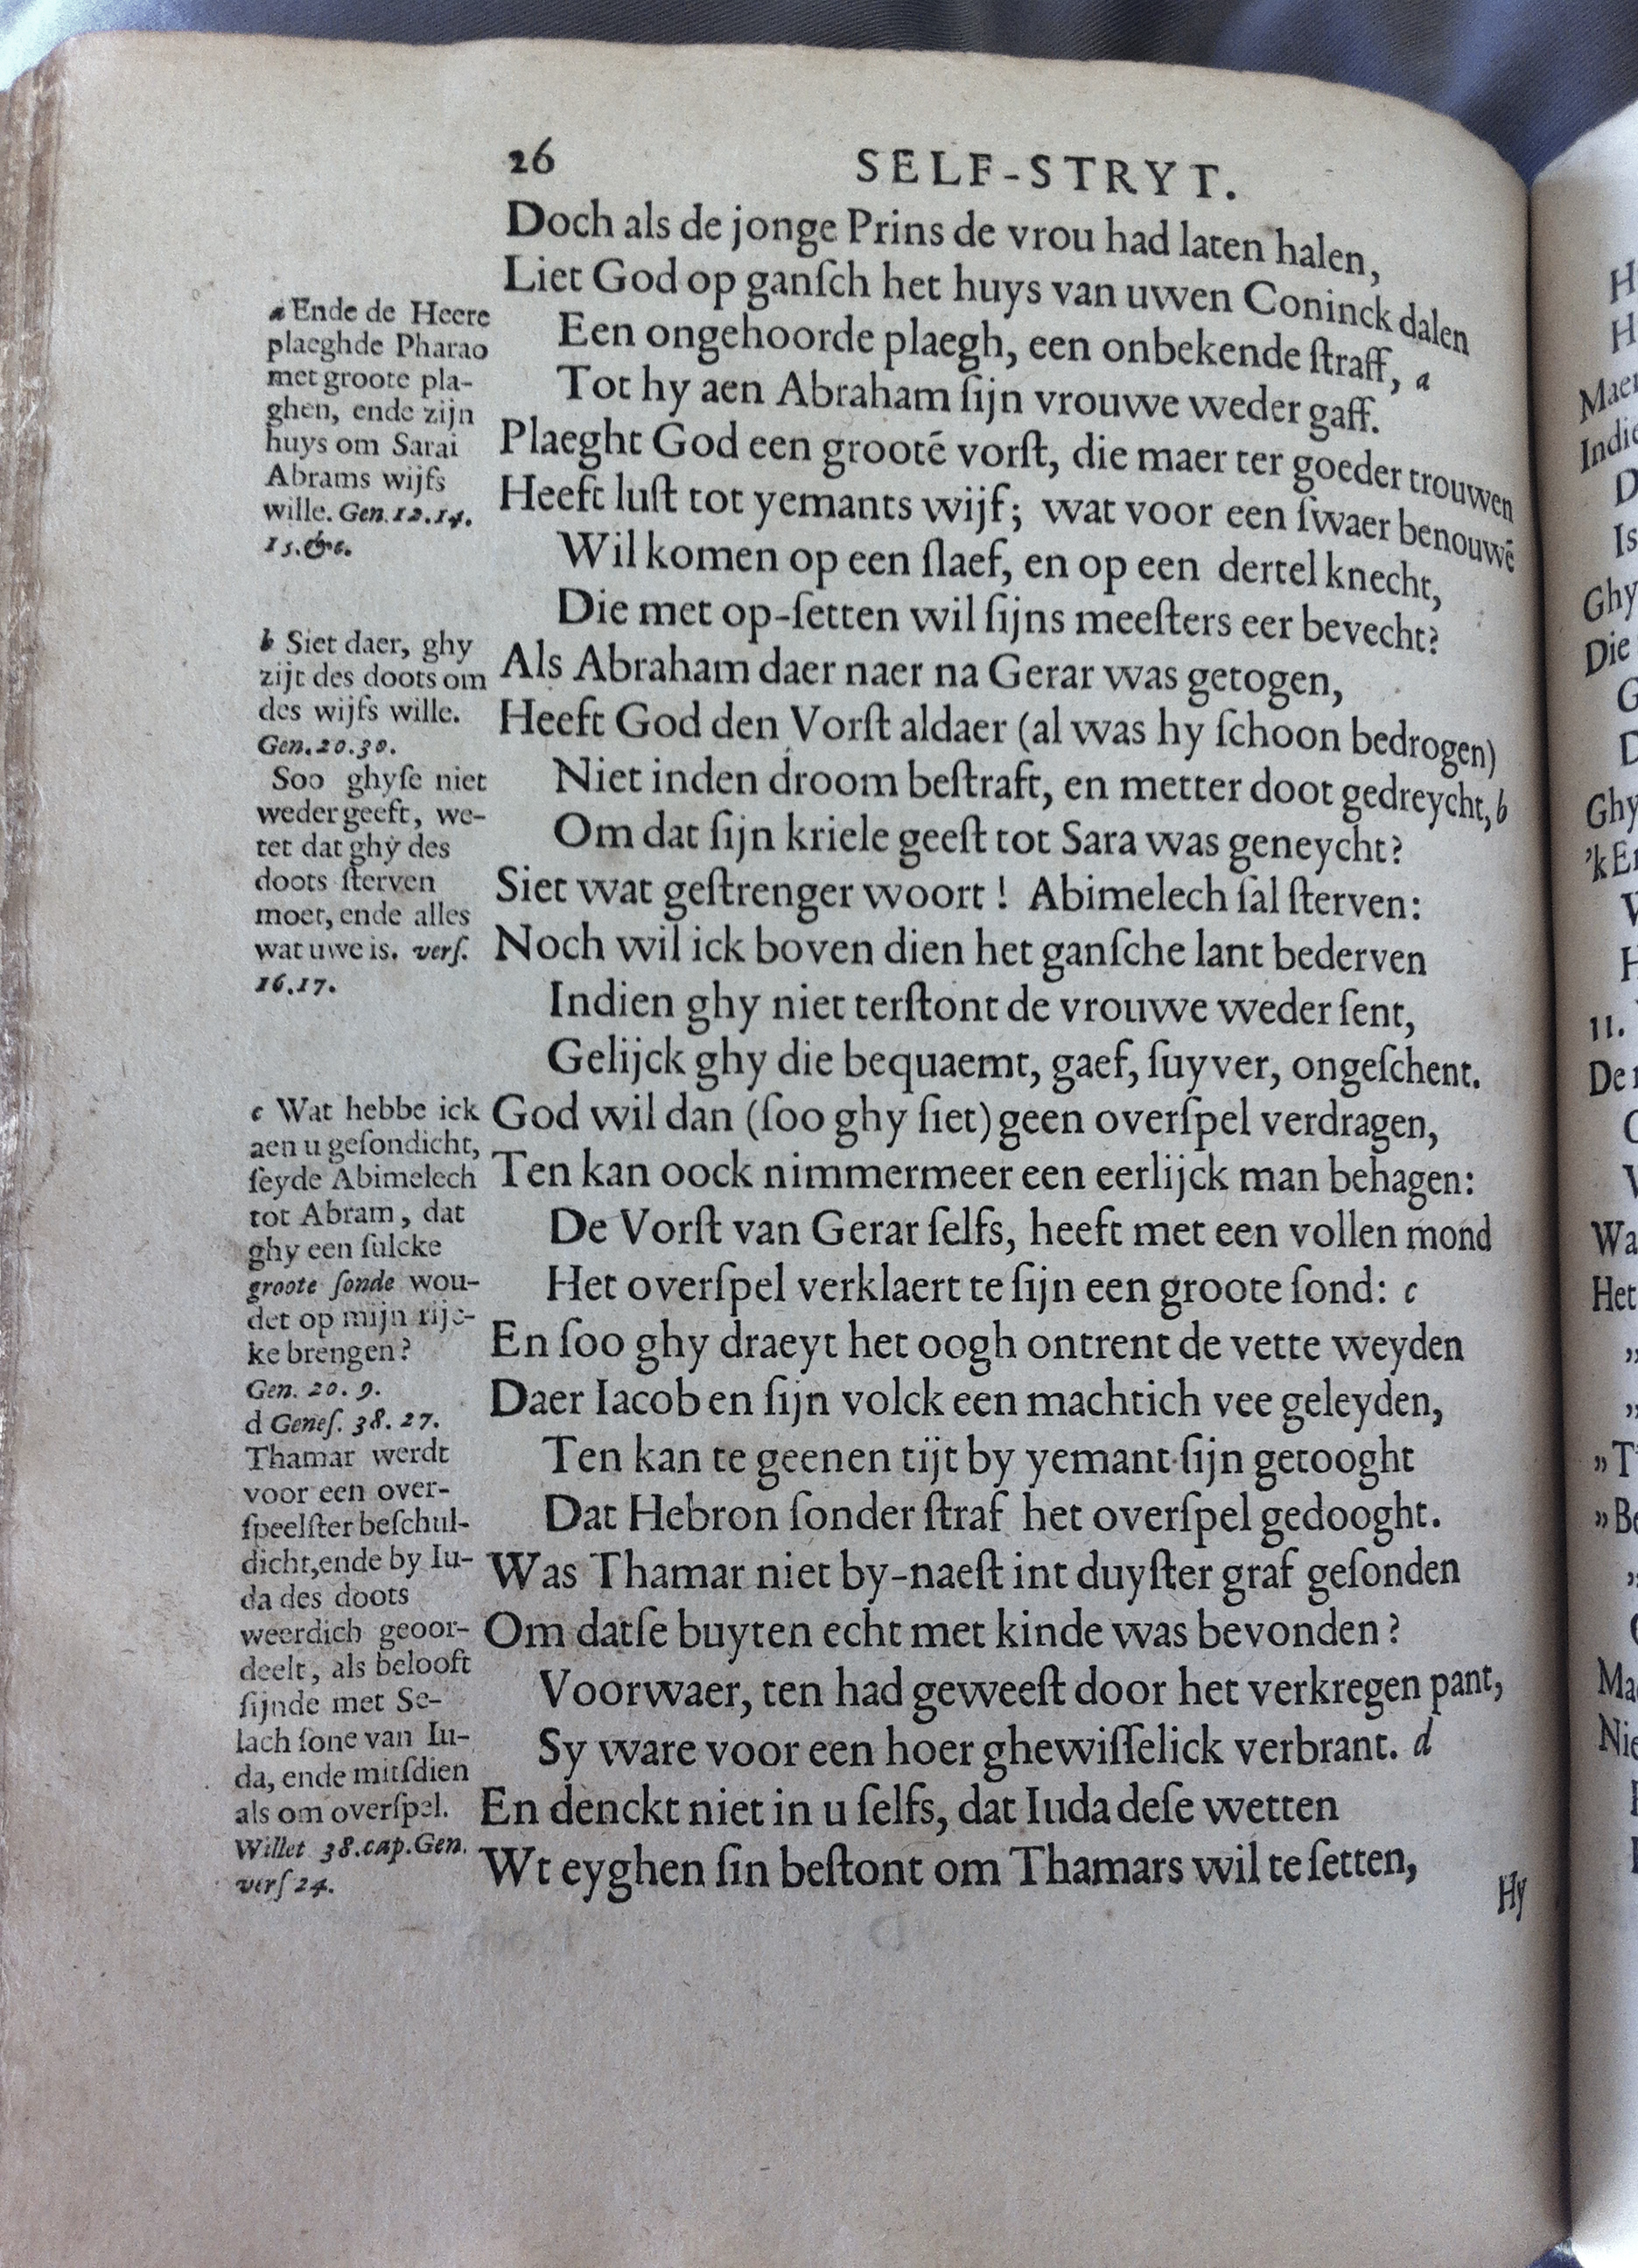 26 SELF-STRYT.
Doch als de jonge Prins de vrou had laten halen,
Liet God op ganſch het huys van uwen Coninck dalen
Een ongehoorde plaegh, een onbekende ſtraff, a
Tot hy aen Abraham ſijn vrouwe weder gaff.
Plaeght God een grootē vorſt, die maer ter goeder trouwen
Heeft luſt tot yemants wijf; wat voor een ſwaer benouwē
Wil komen op een ſlaef, en op een dertel knecht,
Die met op-ſetten wil ſijns meeſters eer bevecht?
Als Abraham daer naer na Gerar was getogen,
Heeft God den Vorſt aldaer (al was hy ſchoon bedrogen)
Niet inden droom beſtraft, en metter doot gedreycht, b
Om dat ſijn kriele geeſt tot Sara was geneycht?
Siet wat geſtrenger woort! Abimelech ſal ſterven:
Noch wil ick boven dien het ganſche lant bederven
Indien ghy niet terſtont de vrouwe weder ſent,
Gelijck ghy die bequaemt, gaef, ſuyver, ongeſchent.
God wil dan (ſoo ghy ſiet) geen overſpel verdragen,
Ten kan oock nimmermeer een eerlijck man behagen:
De Vorſt van Gerar ſelfs, heeft met een vollen mond
Het overſpel verklaert te ſijn een groote ſond: c
En ſoo ghy draeyt het oogh ontrent de vette weyden
Daer Iacob en ſijn volck een machtich vee geleyden,
Ten kan te geenen tijt by yemant ſijn getooght
Dat Hebron ſonder ſtraf het overſpel gedooght.
Was Thamar niet by-naeſt int duyſter graf geſonden
Om datſe buyten echt met kinde was bevonden?
Voorwaer, ten had geweeſt door het verkregen pant,
Sy ware voor een hoer ghewiſſelick verbrant. d
En denckt niet in u ſelfs, dat Iuda deſe wetten
Wt eyghen ſin beſtont om Thamars wil te ſetten,
Hy
a Ende de Heere
plaeghde Pharao
met groote pla-
ghen, ende zijn
huys om Sarai
Abrams wijfs
wille. Gen. 12.14.
15.&c.
b Siet daer, ghy
zijt des doots om
des wijfs wille.
Gen. 20.30.
Soo ghyſe niet
weder geeft, we-
tet dat ghy des
doots ſterven
moet, ende alles
wat uwe is. verſ.
16.17.
c Wat hebbe ick
aen u geſondicht,
ſeyde Abimelech
tot Abram, dat
ghy een ſulcke
groote ſonde wou-
det op mijn rijc-
ke brengen?
Gen. 20. 9.
d Geneſ. 38. 27.
Thamar werdt
voor een over-
ſpeelſter beſchul-
dicht, ende by Iu-
da des doots
weerdich geoor-
deelt, als belooft
ſijnde met Se-
lach ſone van Iu-
da, ende mitſdien
als om overſpel.
Willet 38.cap.Gen.
verſ 24.
H
H
Maer
Indie
D
Is
Ghy
Die
G
D
Ghy
'k En
V
H
11.
De
Wa
Het
„
„
„T
„Be
Ma
Nie